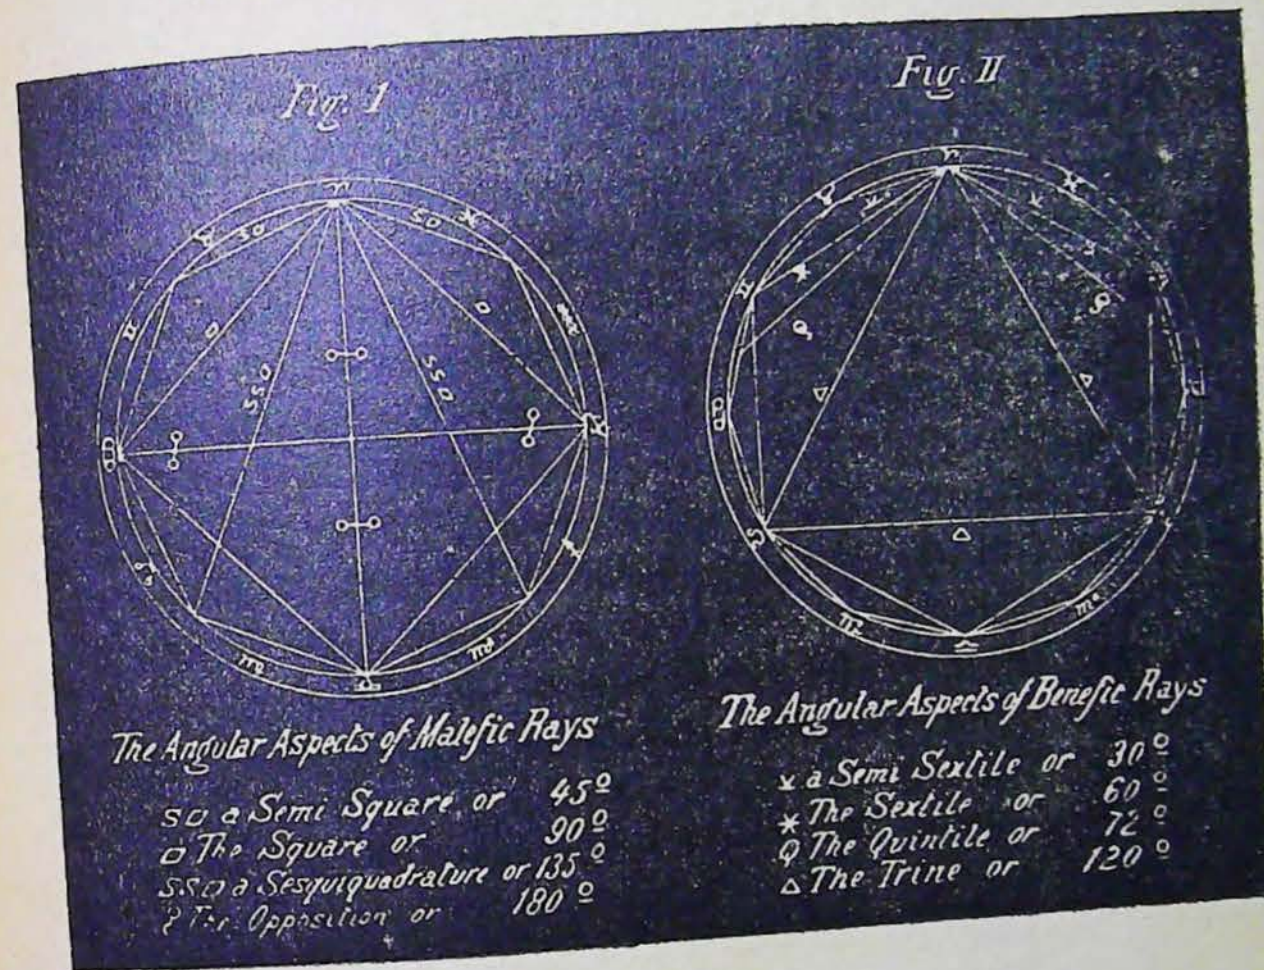 Fig. I
Fig. II
The Angular Aspects of Malefic Rays
S□ a Semi Square or 45º
□ The Square or 90º
SS□ a Sesquiquadrature or 135º
The Opposition or 180º
The Angular Aspects of Benefic Rays
⚺ a Semi Sextile or 30º
⚹ The Sextile or 60º
Q The Quintile or 72º
△ The Trine or 120º